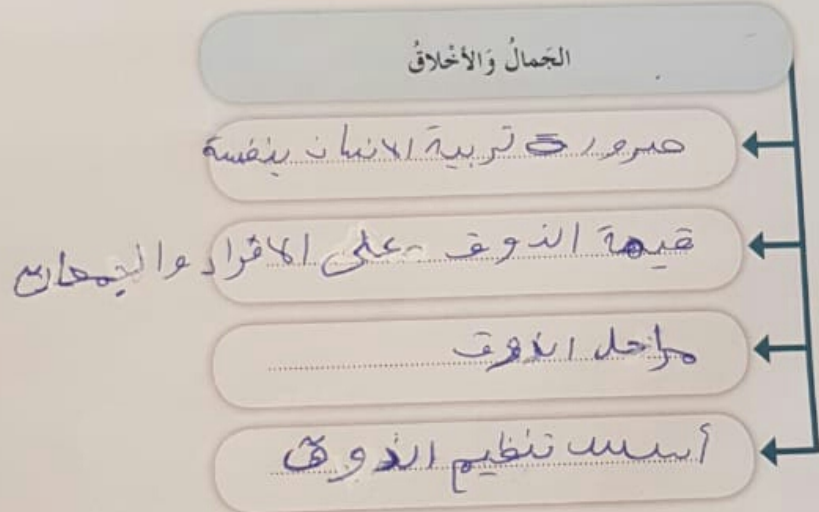 الجَمالُ وَالأَخْلاقُ
ضرورة تربية الانسان بنفسة
قيمة الذوق على الافراد والجمعات
مراحل الذوق
أسس تنظيم الذوق